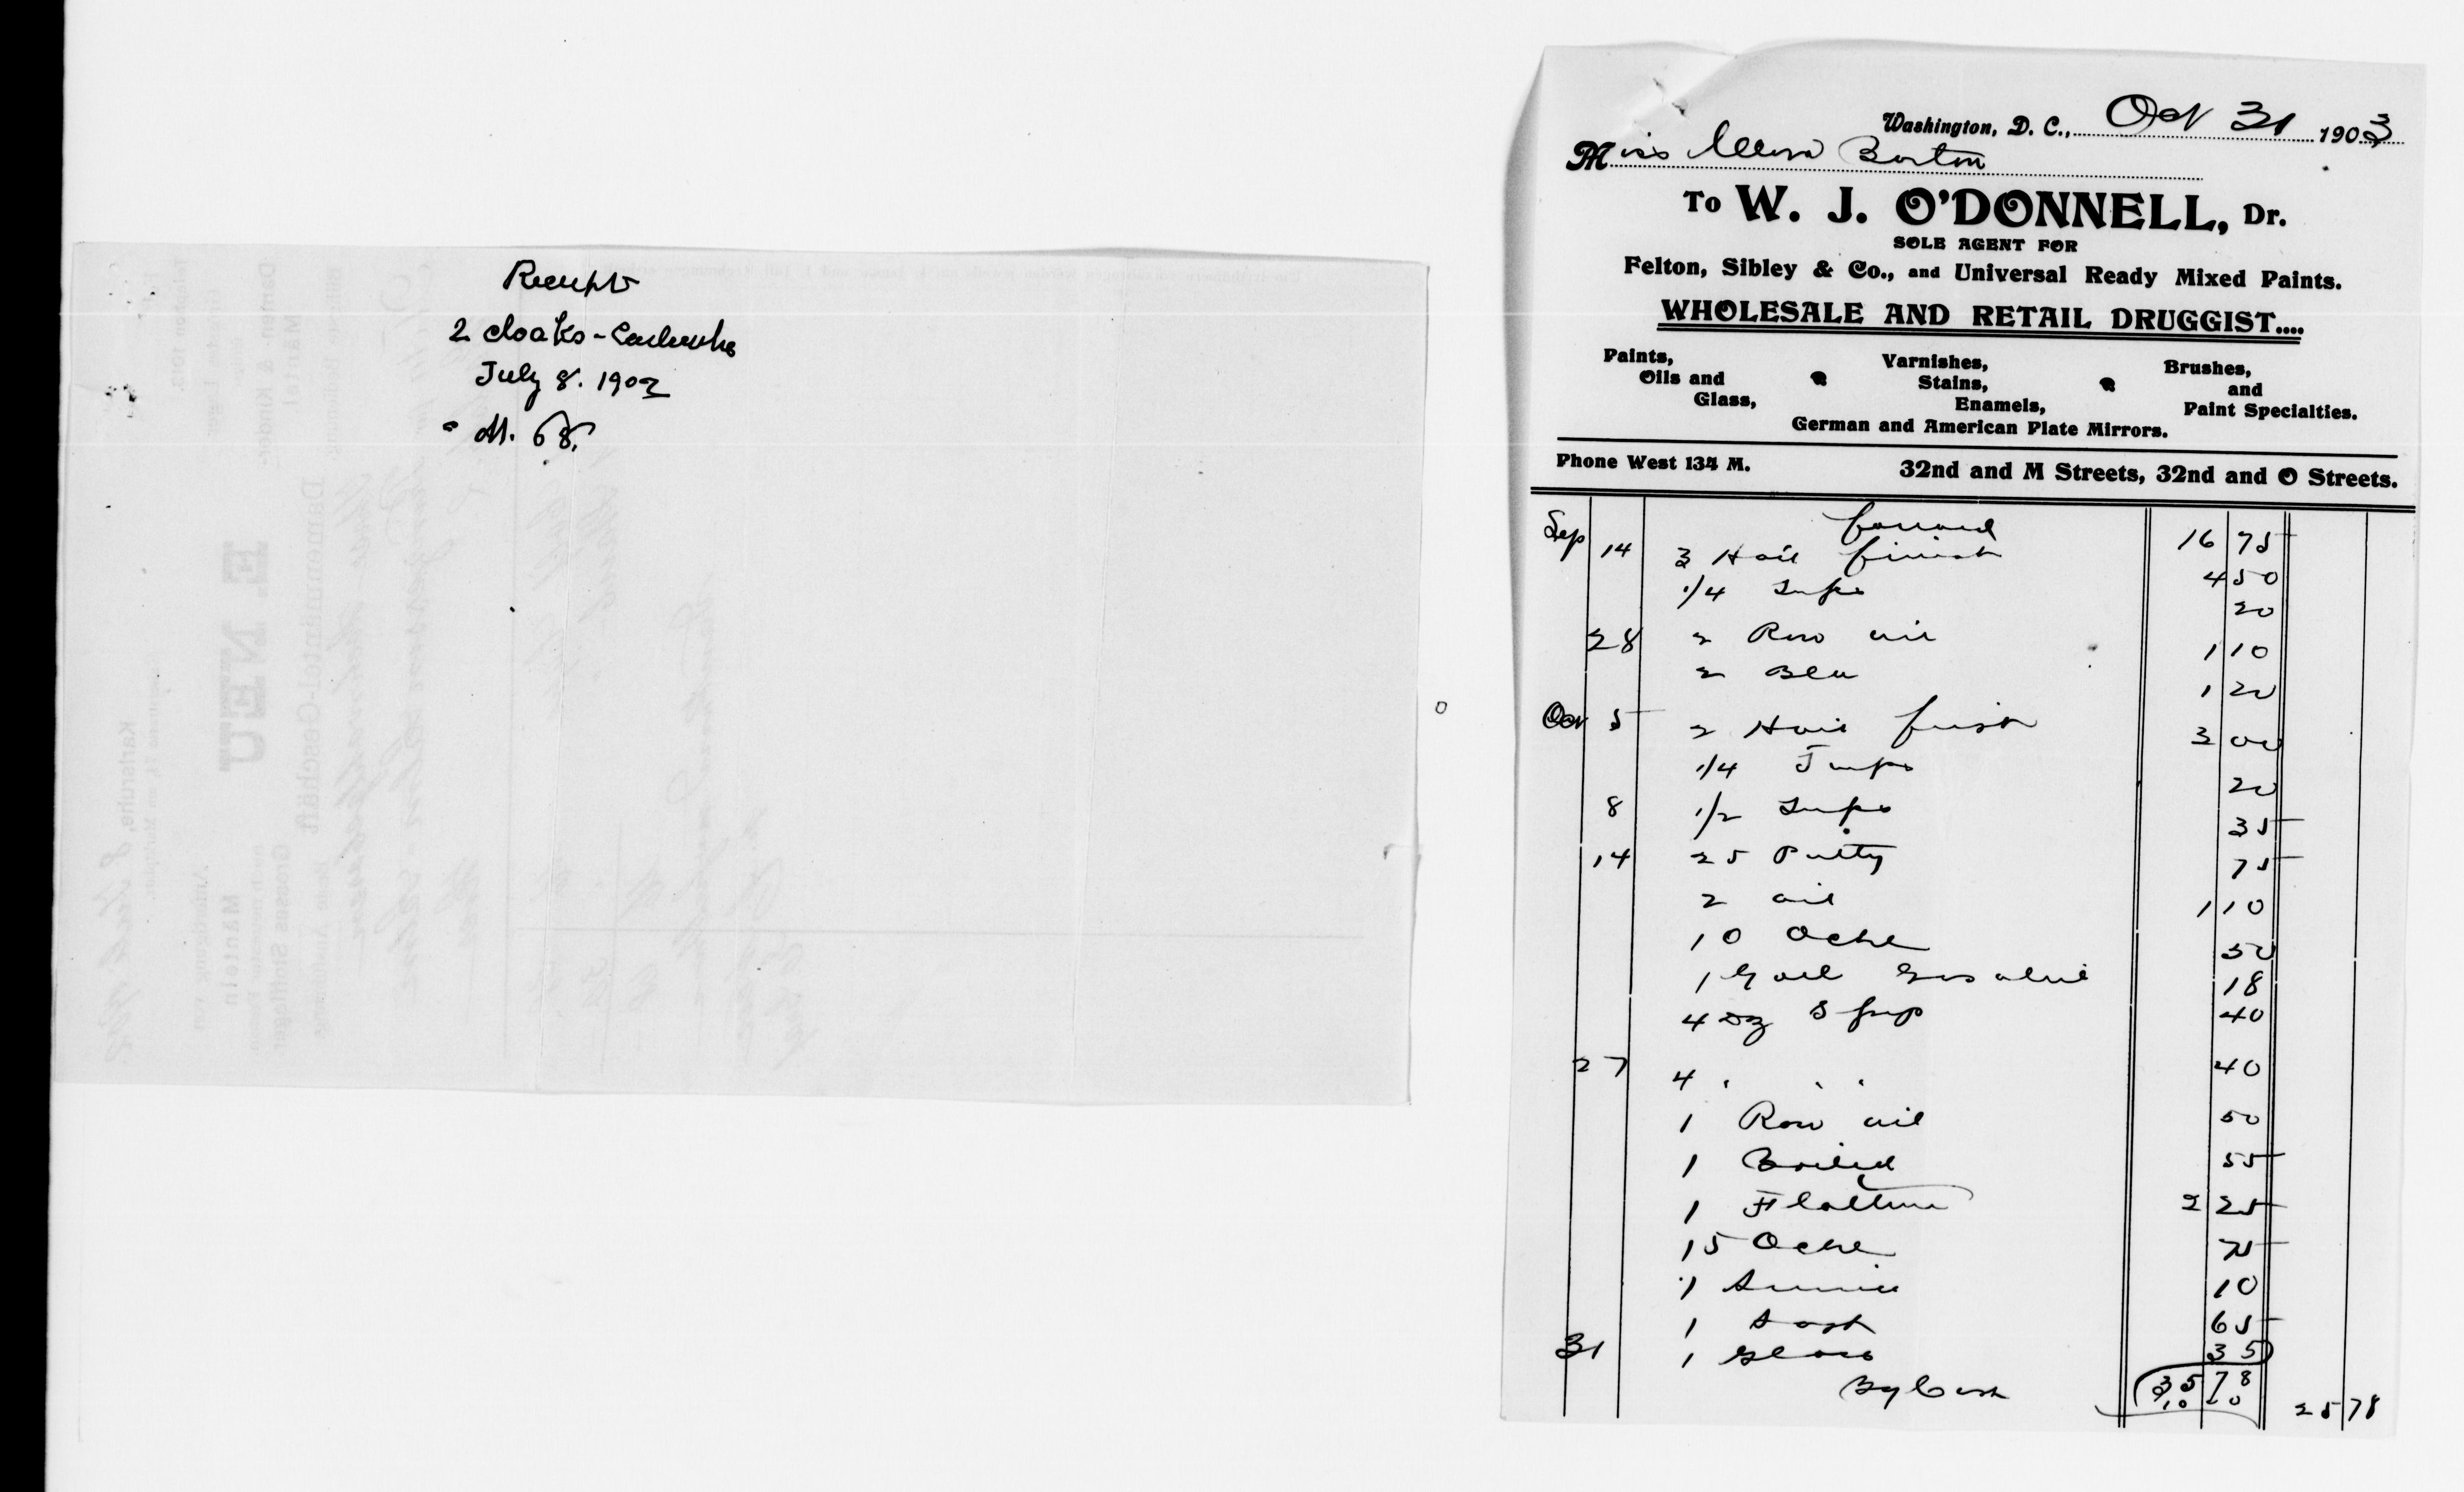 Receipt
2 cloaks - Carlsruhe
July 8. 1902
" M. 68.
Washington, D. C., Oct 31 1903
Miss Clara Barton
To W. J. O'DONNELL, Dr.
SOLE AGENT FOR
Felton, Sibley & Co., and Universal Ready Mixed Paints.
WHOLESALE AND RETAIL DRUGGIST....
Paints, Oils and Glass,
Varnishes, Stains, Enamels,
Brushes, and Paint Specialties.
German and American Plate Mirrors.
Phone West 134 M. 32nd and M Streets, 32nd and O Streets.
forward 16 75
Sep 14 3 Hail finish 4 50
1/4 Turps 20
28 2 Raw oil 1 10
2 1 20
Oct 5 2 Hail finish 3 00
1/4 Turps 20
8 1/2 Turps 35
14 25 Putty 75
2 oil 1 10
10 Ochre 50
1 Gall Gasoline 18
4 Dz 40
27 4 " " " 40
1 Raw oil 50
1 Boiled 55
1 2 25
15 Ochre 75
1 10
1 Sash 65
31 1 Glass 35
35 78
By Cash 10 00 25 78